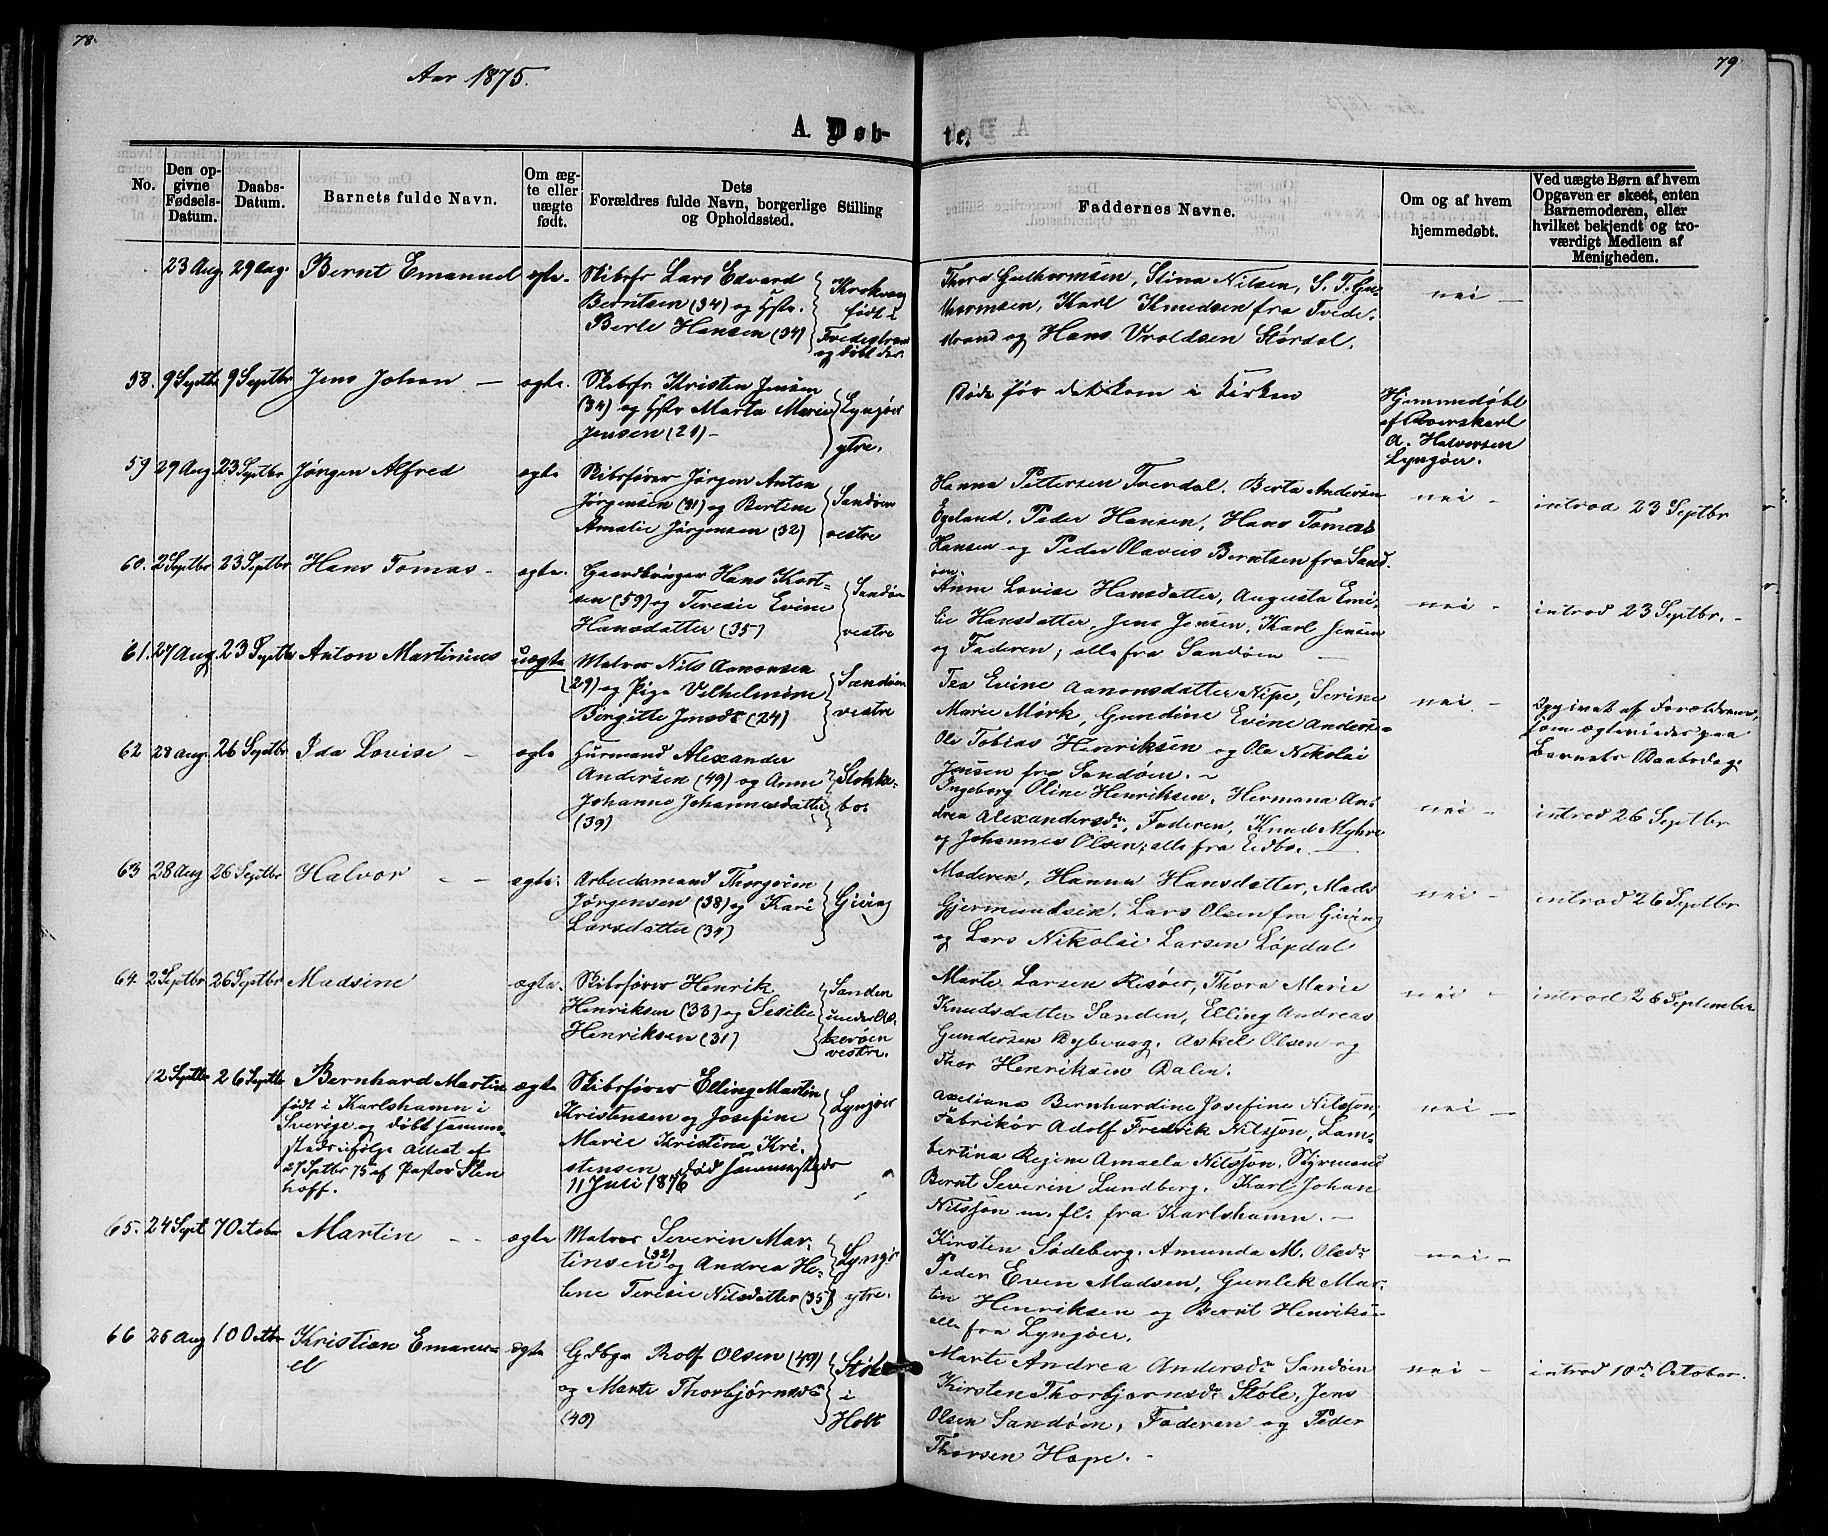 78.
79.
Aar 1875.
A. Døb-
te.
No.
Den op-
givne
Fødsels-
Datum.
Daabs-
Datum.
Barnets fulde Navn.
Om æg-
te eller
uægte
født.
Dets
Forældres fulde Navn, borgerlige Stilling
og Opholdssted.
Faddernes Navne.
Om og af hvem
hjemmedøbt.
Ved uægte Børn af hvem
Opgaven er skeet, enten
Barnemoderen, eller
hvilket bekjendt og tro-
værdigt Medlem af
Menigheden.
23 Aug 29 Aug. Bernt Emanuel ægte.
Skibsfr Lars Edvard
Berntsen (34) og Hstr.
Berte Hansen (34)
Krokvaag
født i
Tvedestrand
og døbt der.
Thord Guthormsen, Stina Nilsen, S. T. Gut-
hormsen, Karl Knudsen fra Tvede-
strand og Hans Vroldsen Størdal.
nei —
58. 9 Septbr 9 Septbr Jens Johan — ægte.
Skibsfr. Kristen Jensen
(34) og Hstr Marta Marie
Jensen (21) —
Lyngøer
ytre.
Døde før det kom i Kirken
Hjemmedøbt
af Overskarl
A. Halvorsen
Lyngøer.
59 29 Aug 23 Septbr Jørgen Alfred ægte
Skibsfører Jørgen Anton
Jørgensen (31) og Bertine
Amalie Jørgensen (32)
Sandøen
vestre
Hanna Pettersen Tverdal. Berta Andersen
Egeland, Peder Hansen, Hans Tomas
Hansen og Peder Olavus Berntsen fra Sand-
øen.
nei —
introd 23 Septbr
60. 2 Septbr 23 Septbr Hans Tomas — ægte.
Gaardbruger Hans Kort-
sen (59) og Teresie Evine
Hansdatter (35)
Sandøen
vestre
Anne Lovise Hansdatter, Augusta Emi-
lie Hansdatter, Jens Jensen, Karl Jensen
og Faderen, alle fra Sandøen —
nei —
introd 23 Septbr. —
61. 27 Aug 23 Septbr Anton Martinius uægte
Matros Nils Aanonsen
(29) og Pige Vilhelmine
Bergitte Jensdr (24)
Sandøen
vestre
Tea Evine Aanonsdatter Nipe, Serine
Marie Mørk, Gundine Evine Anderse-
Ole Tobias Henriksen og Ole Nikolai
Jensen fra Sandøen. —
nei —
Opgivet af Forældrene,
som ægteviedes paa
Barnets Daabsdag.
62 28 Aug. 26 Septbr Ida Lovise — ægte
Huusmand Alexander
Andersen (49) og Anne
Johanne Johannesdatter
(39)
Stokke-
bo.
Ingeborg Oline Henriksen, Hermana An-
drea Alexandersdr, Faderen, Knud Myhre
og Johannes Olsen; alle fra Eidbo. —
nei —
introd 26 Septbr
63 28 Aug 26 Septbr Halvor — — ægte.
Arbeidsmand Thorgrim
Jørgensen (38) og Kari
Larsdatter (34)
Giving
Moderen, Hanna Hansdatter, Mads
Gjermundsen, Lars Olsen fra Giving
og Lars Nikolai Larsen Løpdal
nei —
introd 26 Septbr
64. 2 Septbr 26 Septbr Madsine ægte.
Skibsfører Henrik
Henriksen (33) og Sesilie
Henriksen (31)
Sanden
under As-
kerøen
vestre.
Marte Larsen Risøer, Thora Marie
Knudsdatter Sanden, Elling Andreas
Gundersen Dybvaag, Askel Olsen og
Thor Henriksen Dalen.
nei —
introd 26 September
12 Septbr 26 Septbr Bernhard Martin ægte
født i Karlshamn i
Sverige og døbt samme-
steds ifølge Attest af
27 Sptbr 75 af Pastor Sten
hoff.
Skibsfører Elling Martin
Kristensen og Josefine
Marie Kristina Kri-
stensen død sammesteds
11 Juli 1876
Lyngøer
Axeliana Bernhardine Josefine Nilsson,
Fabrikør Adolf Fredrik Nilsson, Lam-
bertina Regine Amaela Nilsson, Styrmand
Bernt Severin Lundberg, Karl Johan
Nilsson m. fl. fra Karlshamn. —
nei —
65. 24 Sept 7 October Martin — — ægte
Matros Severin Mar-
tinsen (32) og Andrea He-
lene Teresie Nilsdatter (35)
Lyngør
ytre.
Kirsten Södeberg. Amunda M. Olsdr
Peder Even Madsen, Gunlek Mar-
tin Henriksen og Bernt Henriksen
alle fra Lyngøer.
nei —
66 25 Aug 10 Octbr Kristian Emanu-
el ægte
Gdbgr Rolf Olsen (49)
og Marte Thorbjørnsdr
(40)
Støle
i
Holt
Marte Andrea Andersdr Sandøen
Kirsten Thorbjørnsdr Støle, Jens
Olsen Sandøen, Faderen og Peder
Thorsen Hope. —
nei —
introd 10de October.